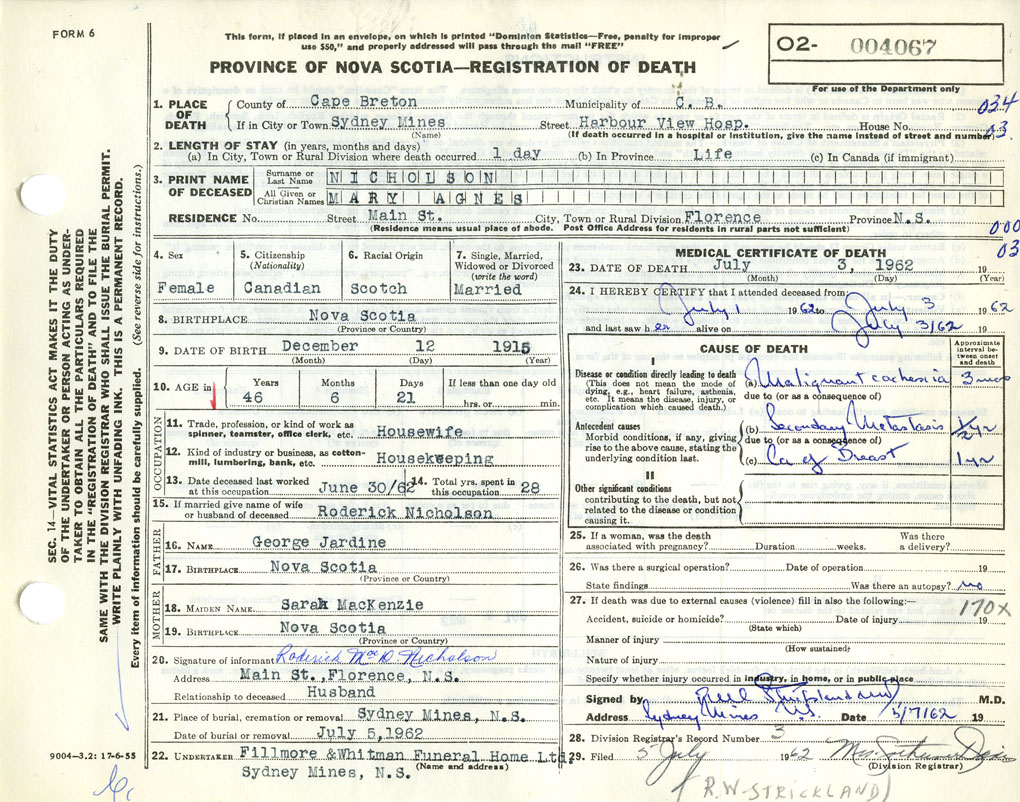 FORM 6
This form, if placed in an envelope, on which is printed "Dominion Statistics—Free, penalty for improper
use $50," and properly addressed will pass through the mail "FREE"
02- 004067
PROVINCE OF NOVA SCOTIA—REGISTRATION OF DEATH
For use of the Department only
1. PLACE OF DEATH
County of Cape Breton Municipality of C. B. 034
If in City or Town Sydney Mines Street Harbour View Hosp. House No. 03
(Name) (If death occurred in a hospital or institution, give the name instead of street and number)
2. LENGTH OF STAY (in years, months and days)
(a) In City, Town or Rural Division where death occurred 1 day (b) In Province Life (c) In Canada (if immigrant)
3. PRINT NAME OF DECEASED
Surname or Last Name NICHOLSON
All Given or Christian Names MARY AGNES
RESIDENCE No. Street Main St. City, Town or Rural Division Florence Province N.S.
(Residence means usual place of abode. Post Office Address for residents in rural parts not sufficient)
000
03
4. Sex
Female
5. Citizenship
(Nationality)
Canadian
6. Racial Origin
Scotch
7. Single, Married,
Widowed or Divorced
(write the word)
Married
8. BIRTHPLACE Nova Scotia
(Province or Country)
9. DATE OF BIRTH December 12 1915
(Month) (Day) (Year)
10. AGE in
Years Months Days If less than one day old
46 6 21 hrs. or min.
OCCUPATION
11. Trade, profession, or kind of work as
spinner, teamster, office clerk, etc. Housewife
12. Kind of industry or business, as cotton-
mill, lumbering, bank, etc. Housekeeping
13. Date deceased last worked
at this occupation June 30/62
14. Total yrs. spent in
this occupation 28
15. If married give name of wife
or husband of deceased Roderick Nicholson
FATHER
16. NAME George Jardine
17. BIRTHPLACE Nova Scotia
(Province or Country)
MOTHER
18. MAIDEN NAME Sarah MacKenzie
19. BIRTHPLACE Nova Scotia
(Province or Country)
20. Signature of informant Roderick Mac D. Nicholson
Address Main St., Florence, N.S.
Relationship to deceased Husband
21. Place of burial, cremation or removal Sydney Mines, N.S.
Date of burial or removal July 5,1962
22. UNDERTAKER Fillmore &Whitman Funeral Home Ltd.
(Name and address)
Sydney Mines, N.S.
MEDICAL CERTIFICATE OF DEATH
23. DATE OF DEATH July 3, 1962 19
(Month) (Day) (Year)
24. I HEREBY CERTIFY that I attended deceased from:
July 1 1962 to July 3 1962
and last saw her alive on July 3/62 19
CAUSE OF DEATH
Approximate
interval be-
tween onset
and death
I
Disease or condition directly leading to death
(This does not mean the mode of
dying, e.g., heart failure, asthenia,
etc. It means the disease, injury, or
complication which caused death.)
(a) Malignant cachexia 3 mos
due to (or as a consequence of)
Antecedent causes
Morbid conditions, if any, giving
rise to the above cause, stating the
underlying condition last.
(b) Secondary Metastasis 1/2 yr
due to (or as a consequence of)
(c) Ca of Breast 1 yr
II
Other significant conditions
contributing to the death, but not
related to the disease or condition
causing it.
25. If a woman, was the death
associated with pregnancy? Duration weeks. Was there
a delivery?
26. Was there a surgical operation? Date of operation 19
State findings Was there an autopsy? no
27. If death was due to external causes (violence) fill in also the following:— 170X
Accident, suicide or homicide? Date of injury 19
(State which)
Manner of injury
(How sustained)
Nature of injury
Specify whether injury occurred in industry, in home, or in public place
Signed by M.D.
Address Sydney Mines N.S. Date 5/7/62 19
28. Division Registrar's Record Number 3
29. Filed 5 July 1962
(Division Registrar)
R.W. STRICKLAND
SEC. 14—VITAL STATISTICS ACT MAKES IT THE DUTY
OF THE UNDERTAKER OR PERSON ACTING AS UNDER-
TAKER TO OBTAIN ALL THE PARTICULARS REQUIRED
IN THE "REGISTRATION OF DEATH" AND TO FILE THE
SAME WITH THE DIVISION REGISTRAR WHO SHALL ISSUE THE BURIAL PERMIT.
WRITE PLAINLY WITH UNFADING INK. THIS IS A PERMANENT RECORD.
Every item of information should be carefully supplied. (See reverse side for instructions.)
9004—3.2: 17-6-55